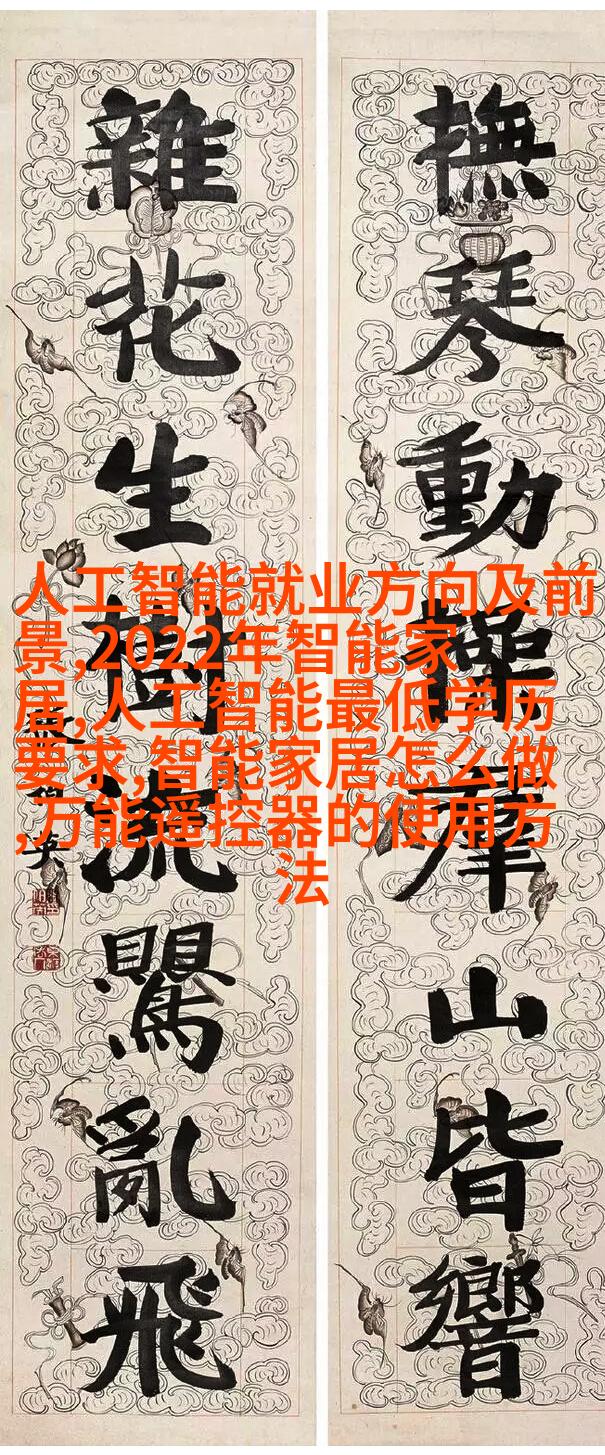 撫琴動操羣山皆響
雜花生樹流鸎亂飛
人工智能就业方向及前
景,2022年智能家
居,人工智能最低学历
要求,智能家居怎么做
,万能遥控器的使用方
法